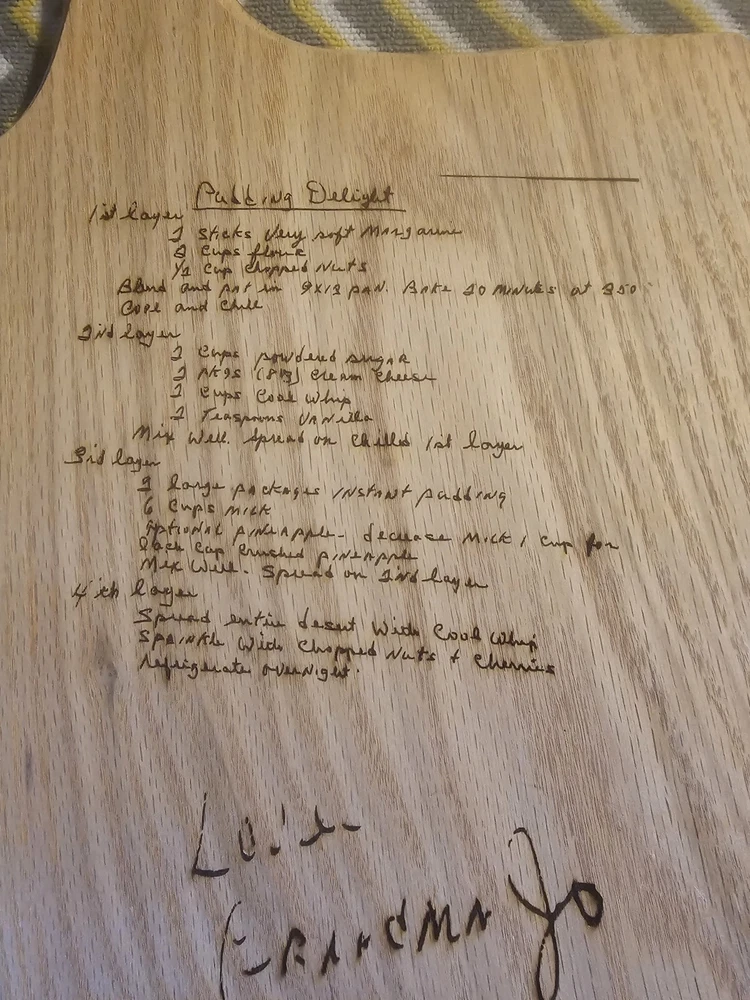 Pudding Delight
1st layer
2 sticks very soft Margarine
2 Cups flour
1/2 Cup Chopped Nuts
Blend and pat in 9x13 pan. Bake 20 minutes at 350
Cool and Chill
2nd layer
2 Cups powdered sugar
2 PKgs (8oz) Cream Cheese
2 Cups Cool Whip
2 Teaspoons Vanilla
Mix Well. Spread on Chilled 1st layer
3rd layer
2 large packages instant pudding
6 Cups Milk
Optional pineapple - decrease Milk 1 Cup for
each Cup Crushed pineapple
Mix Well. Spread on 2nd layer
4th layer
Spread entire desert With Cool Whip
Sprinkle With Chopped Nuts + Cherries
refrigerate overnight.
Love
Grandma Jo